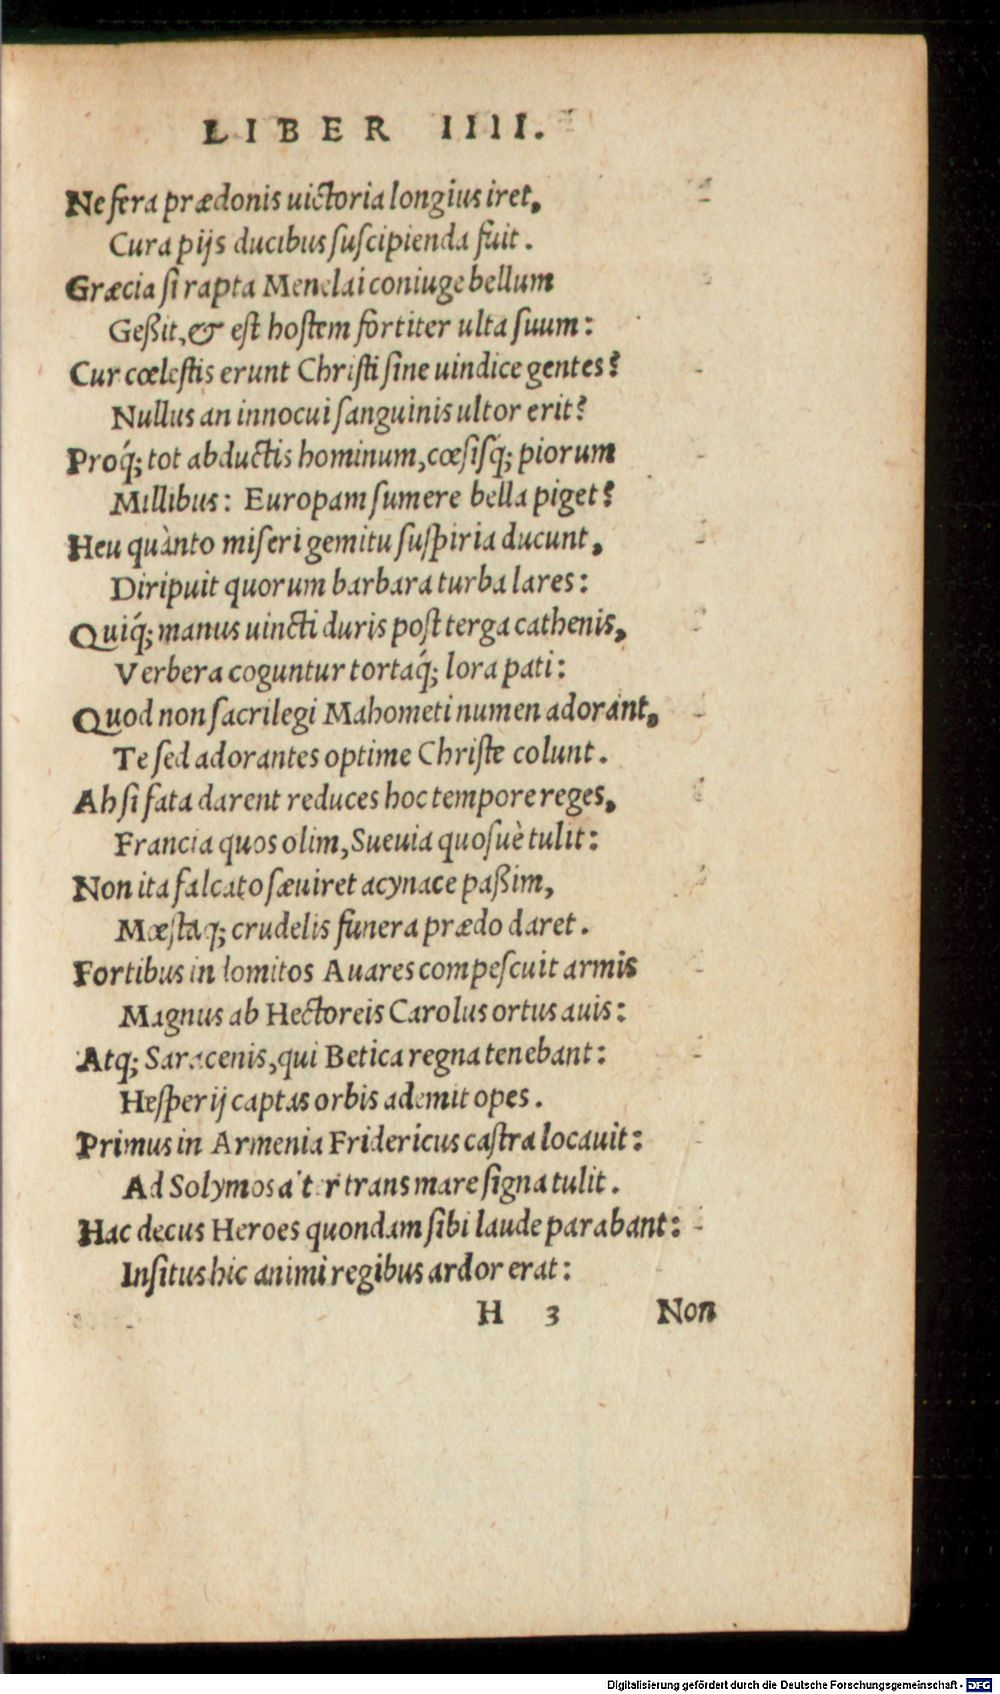 LIBER IIII.
Ne fera prædonis uictoria longius iret,
Cura pijs ducibus suscipienda fuit.
Græcia si rapta Menelai coniuge bellum
Geßit, & est hostem fortiter ulta suum:
Cur cœlestis erunt Christi sine uindice gentes?
Nullus an innocui sanguinis ultor erit?
Proq́; tot abductis hominum, cœsisq́; piorum
Millibus: Europam sumere bella piget?
Heu quànto miseri gemitu suspiria ducunt,
Diripuit quorum barbara turba lares:
Quiq́; manus uincti duris post terga cathenis,
Verbera coguntur tortaq́; lora pati:
Quod non sacrilegi Mahometi numen adorant,
Te sed adorantes optime Christe colunt.
Ah si fata darent reduces hoc tempore reges,
Francia quos olim, Sueuia quosuè tulit:
Non ita falcato sæuiret acynace paßim,
Mœstaq; crudelis funera prædo daret.
Fortibus indomitos Auares compescuit armis
Magnus ab Hectoreis Carolus ortus auis:
Atq; Saracenis, qui Betica regna tenebant:
Hesperij captas orbis ademit opes.
Primus in Armenia Fridericus castra locauit:
Ad Solymos alter trans mare signa tulit.
Hac decus Heroes quondam sibi laude parabant:
Insitus hic animi regibus ardor erat:
H 3 Non
Digitalisierung gefördert durch die Deutsche Forschungsgemeinschaft - DFG